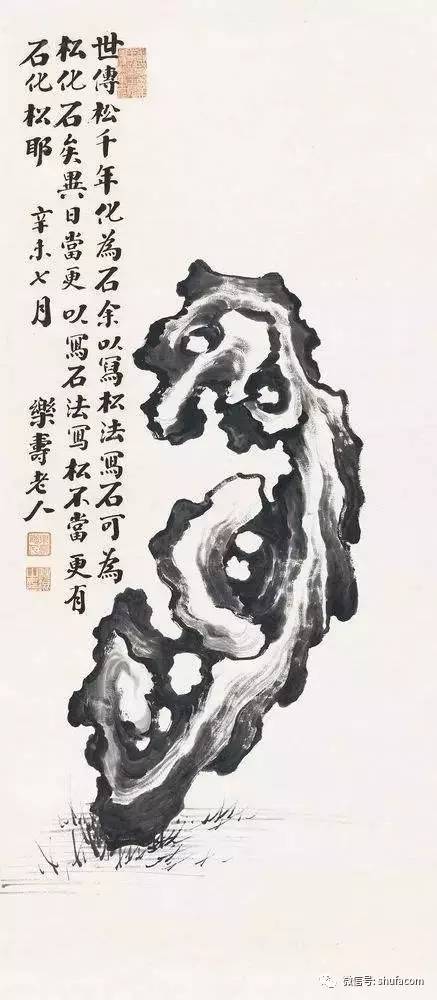 世傳松千年化為石余以寫松法寫石可為
松化石矣異日當更以寫石法寫松不當更有
石化松耶 辛未七月 樂壽老人
微信号: shufacom